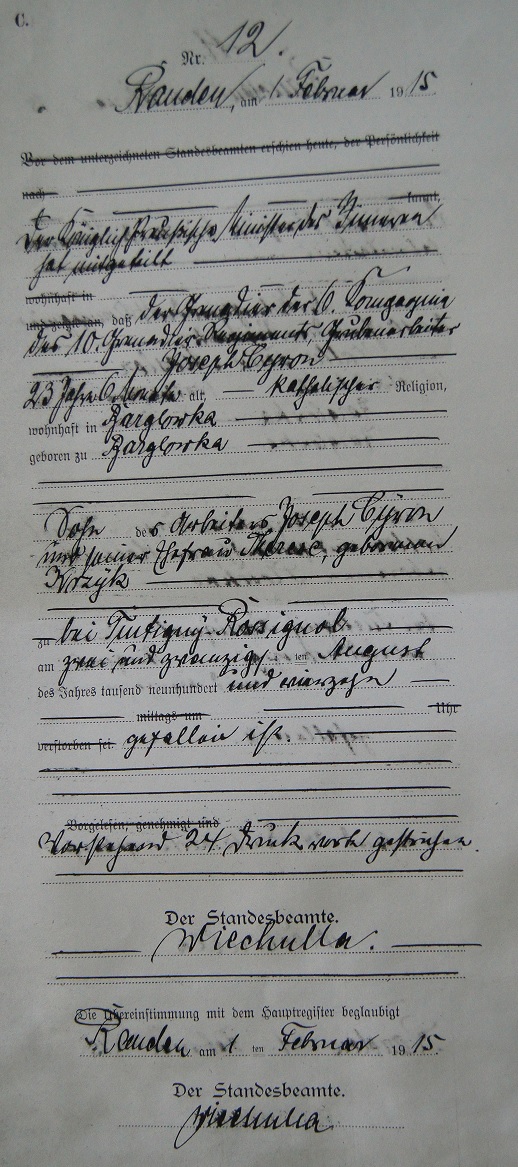 C.
Nr. 12.
Rauden, am 1. Februar 1915
Vor dem unterzeichneten Standesbeamten erschien heute, der Persönlichkeit
nach
kannt,
Der Königlich Preußische Minister des Inneren
hat mitgeteilt
wohnhaft in
und zeigte an, daß der Grenadier der 6. Kompagnie
des 10. Grenadier-Regiments, Grubenarbeiter
Joseph Cyron
23 Jahre 6 Monate alt, katholischer Religion,
wohnhaft in Barglowka
geboren zu Barglowka
Sohn des Arbeiters Joseph Cyron
und seiner Ehefrau Therese, geborenen
Krzyk
zu bei Tintigny-Rossignol
am zwei und zwanzigsten August
des Jahres tausend neunhundert und vierzehn
mittags um Uhr
verstorben sei gefallen ist.
Vorgelesen, genehmigt und
Vorstehend 24 Druckworte gestrichen.
Der Standesbeamte.
Wiechulla.
Die Übereinstimmung mit dem Hauptregister beglaubigt
Rauden am 1 ten Februar 1915.
Der Standesbeamte.
Wiechulla